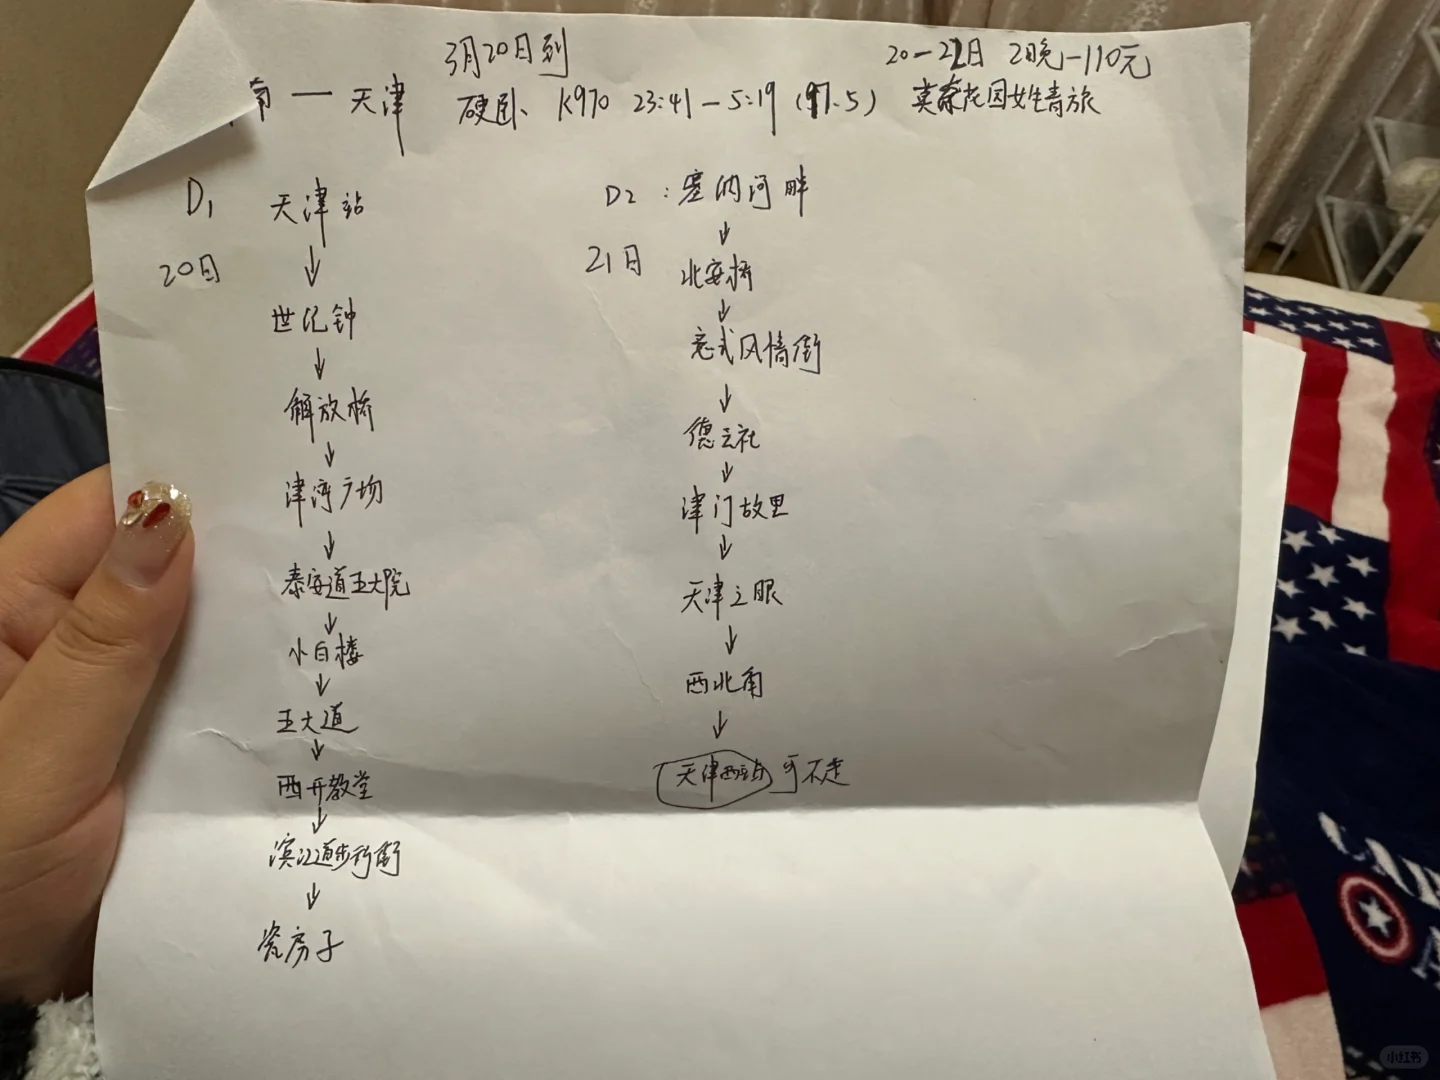 3月20日到
20-22日 2晚-110元
南 — 天津 硬卧 K970 23:41-5:19 (97.5) 莫奈花园女生青旅
D1
20日
天津站
↓
世纪钟
↓
解放桥
↓
津湾广场
↓
泰安道五大院
↓
小白楼
↓
五大道
↓
西开教堂
↓
滨江道步行街
↓
瓷房子
D2：塞纳河畔
21日
↓
北安桥
↓
意式风情街
↓
德云社
↓
津门故里
↓
天津之眼
↓
西北角
↓
天津西站 可不走
小红书